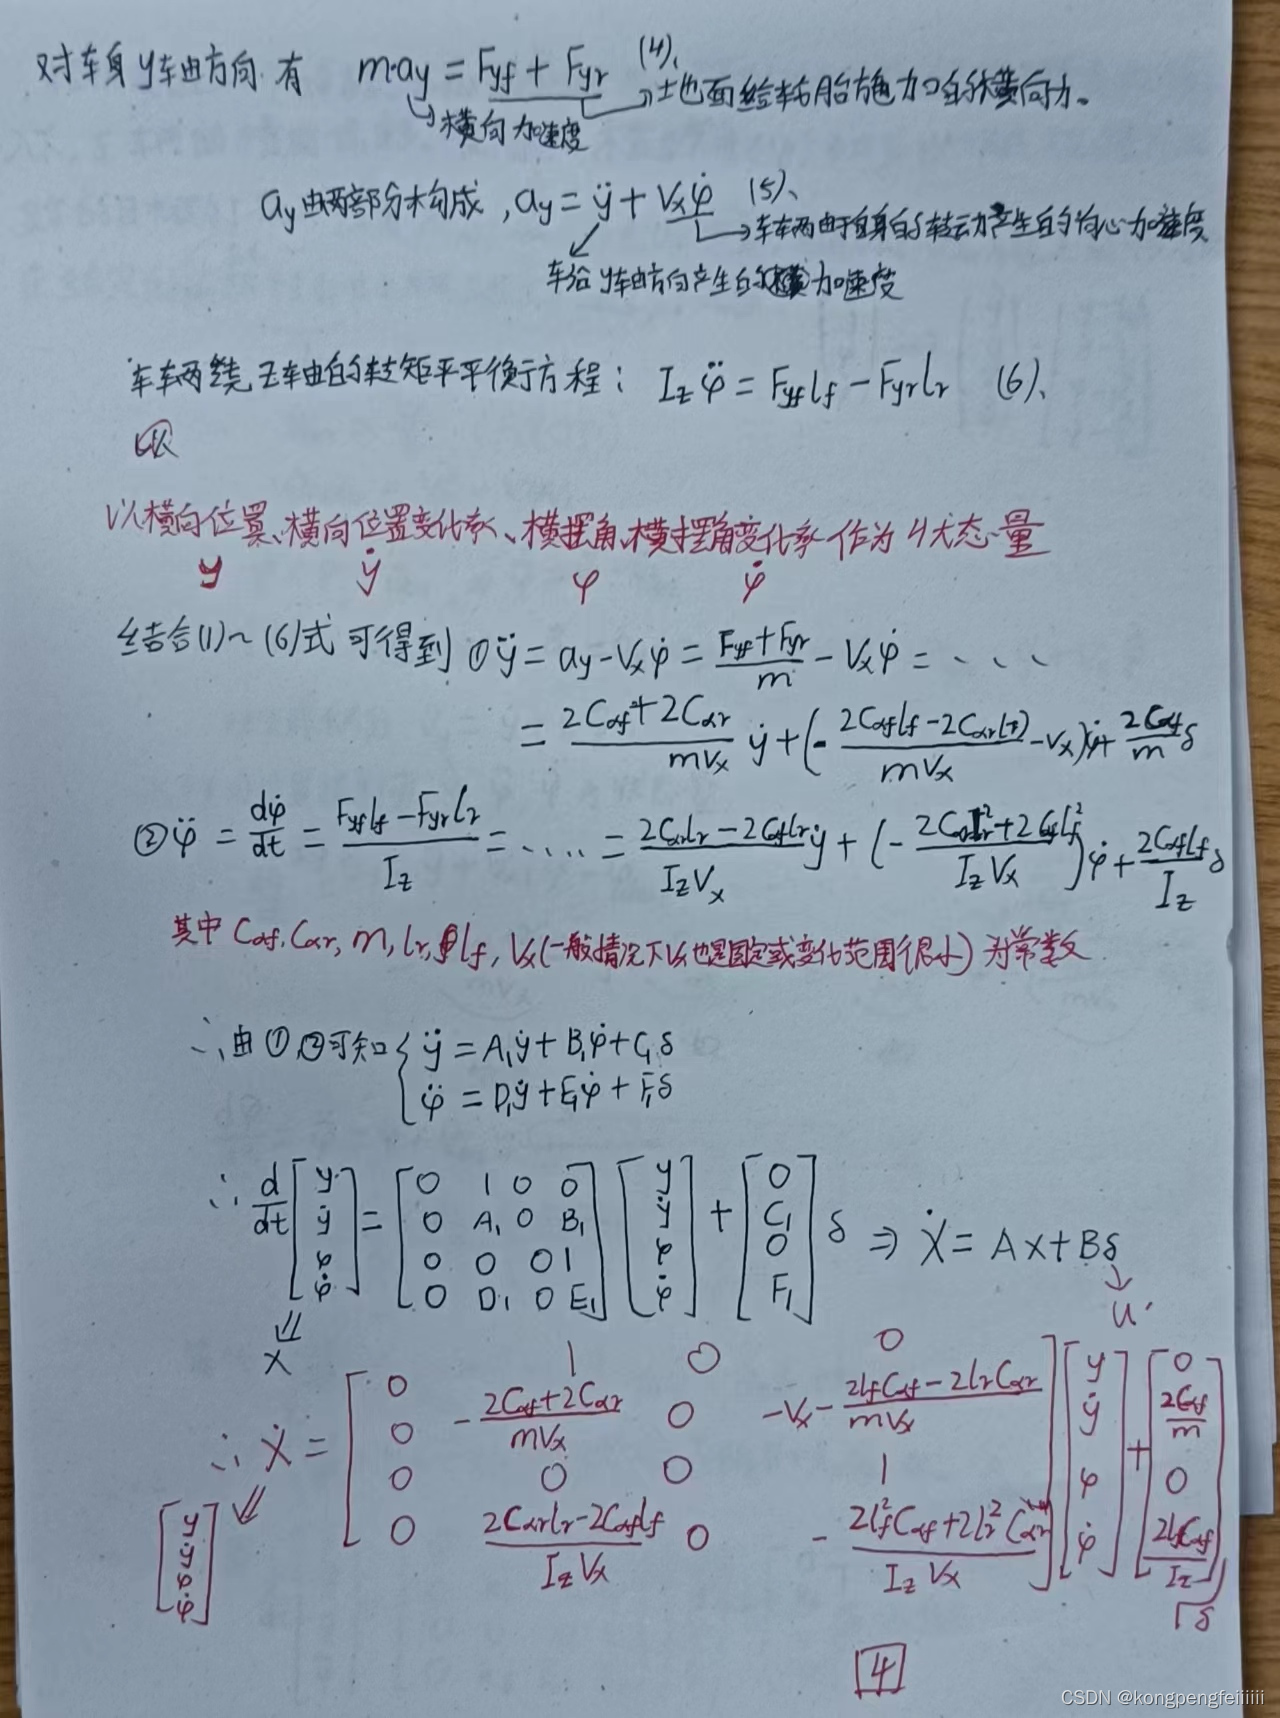 对车身y轴方向有 m·ay = Fyf + Fyr (4)、
→地面给轮胎施加的横向力。
→横向加速度
ay由两部分构成, ay = ÿ + Vxφ̇ (5)、
→车辆由于自身的转动产生的向心加速度
车沿y轴方向产生的横加速度
车辆绕z轴的转矩平衡方程: Izφ̈ = Fyf lf − Fyr lr (6)、
以横向位置、横向位置变化率、横摆角、横摆角变化率作为状态量
y ẏ φ φ̇
结合(1)~(6)式可得到 ①ÿ = ay − Vxφ̇ = (Fyf + Fyr)/m − Vxφ̇ = 、、、
= (2Cαf + 2Cαr)/(mVx) ẏ + (− (2Cαf lf − 2Cαr lr)/(mVx) − Vx)φ̇ + (2Cαf/m)δ
②φ̈ = dφ̇/dt = (Fyf lf − Fyr lr)/Iz = ..... = (2Cαr lr − 2Cαf lr)/(IzVx) ẏ + (− (2Cαr lr² + 2Cαf lf²)/(IzVx))φ̇ + (2Cαf lf/Iz)δ
其中 Cαf, Cαr, m, lr, lf, Vx(一般情况下Vx也是固定或变化范围很小) 为常数
∴由①,②可知 { ÿ = A₁ẏ + B₁φ̇ + C₁δ
φ̈ = D₁ẏ + E₁φ̇ + F₁δ
∴ d/dt [y ẏ φ φ̇] = [0 1 0 0; 0 A₁ 0 B₁; 0 0 0 1; 0 D₁ 0 E₁] [y ẏ φ φ̇] + [0 C₁ 0 F₁] δ ⇒ Ẋ = Ax + Bδ
X
u
∴ Ẋ = [0 1 0 0; 0 −(2Cαf + 2Cαr)/(mVx) 0 −Vx − (2lf Cαf − 2lr Cαr)/(mVx); 0 0 0 1; 0 (2Cαr lr − 2Cαf lf)/(IzVx) 0 − (2lf²Cαf + 2lr²Cαr)/(IzVx)] [y ẏ φ φ̇] + [0 2Cαf/m 0 2lf Cαf/Iz] δ
[y ẏ φ φ̇]
4
CSDN @kongpengfeiiiiii